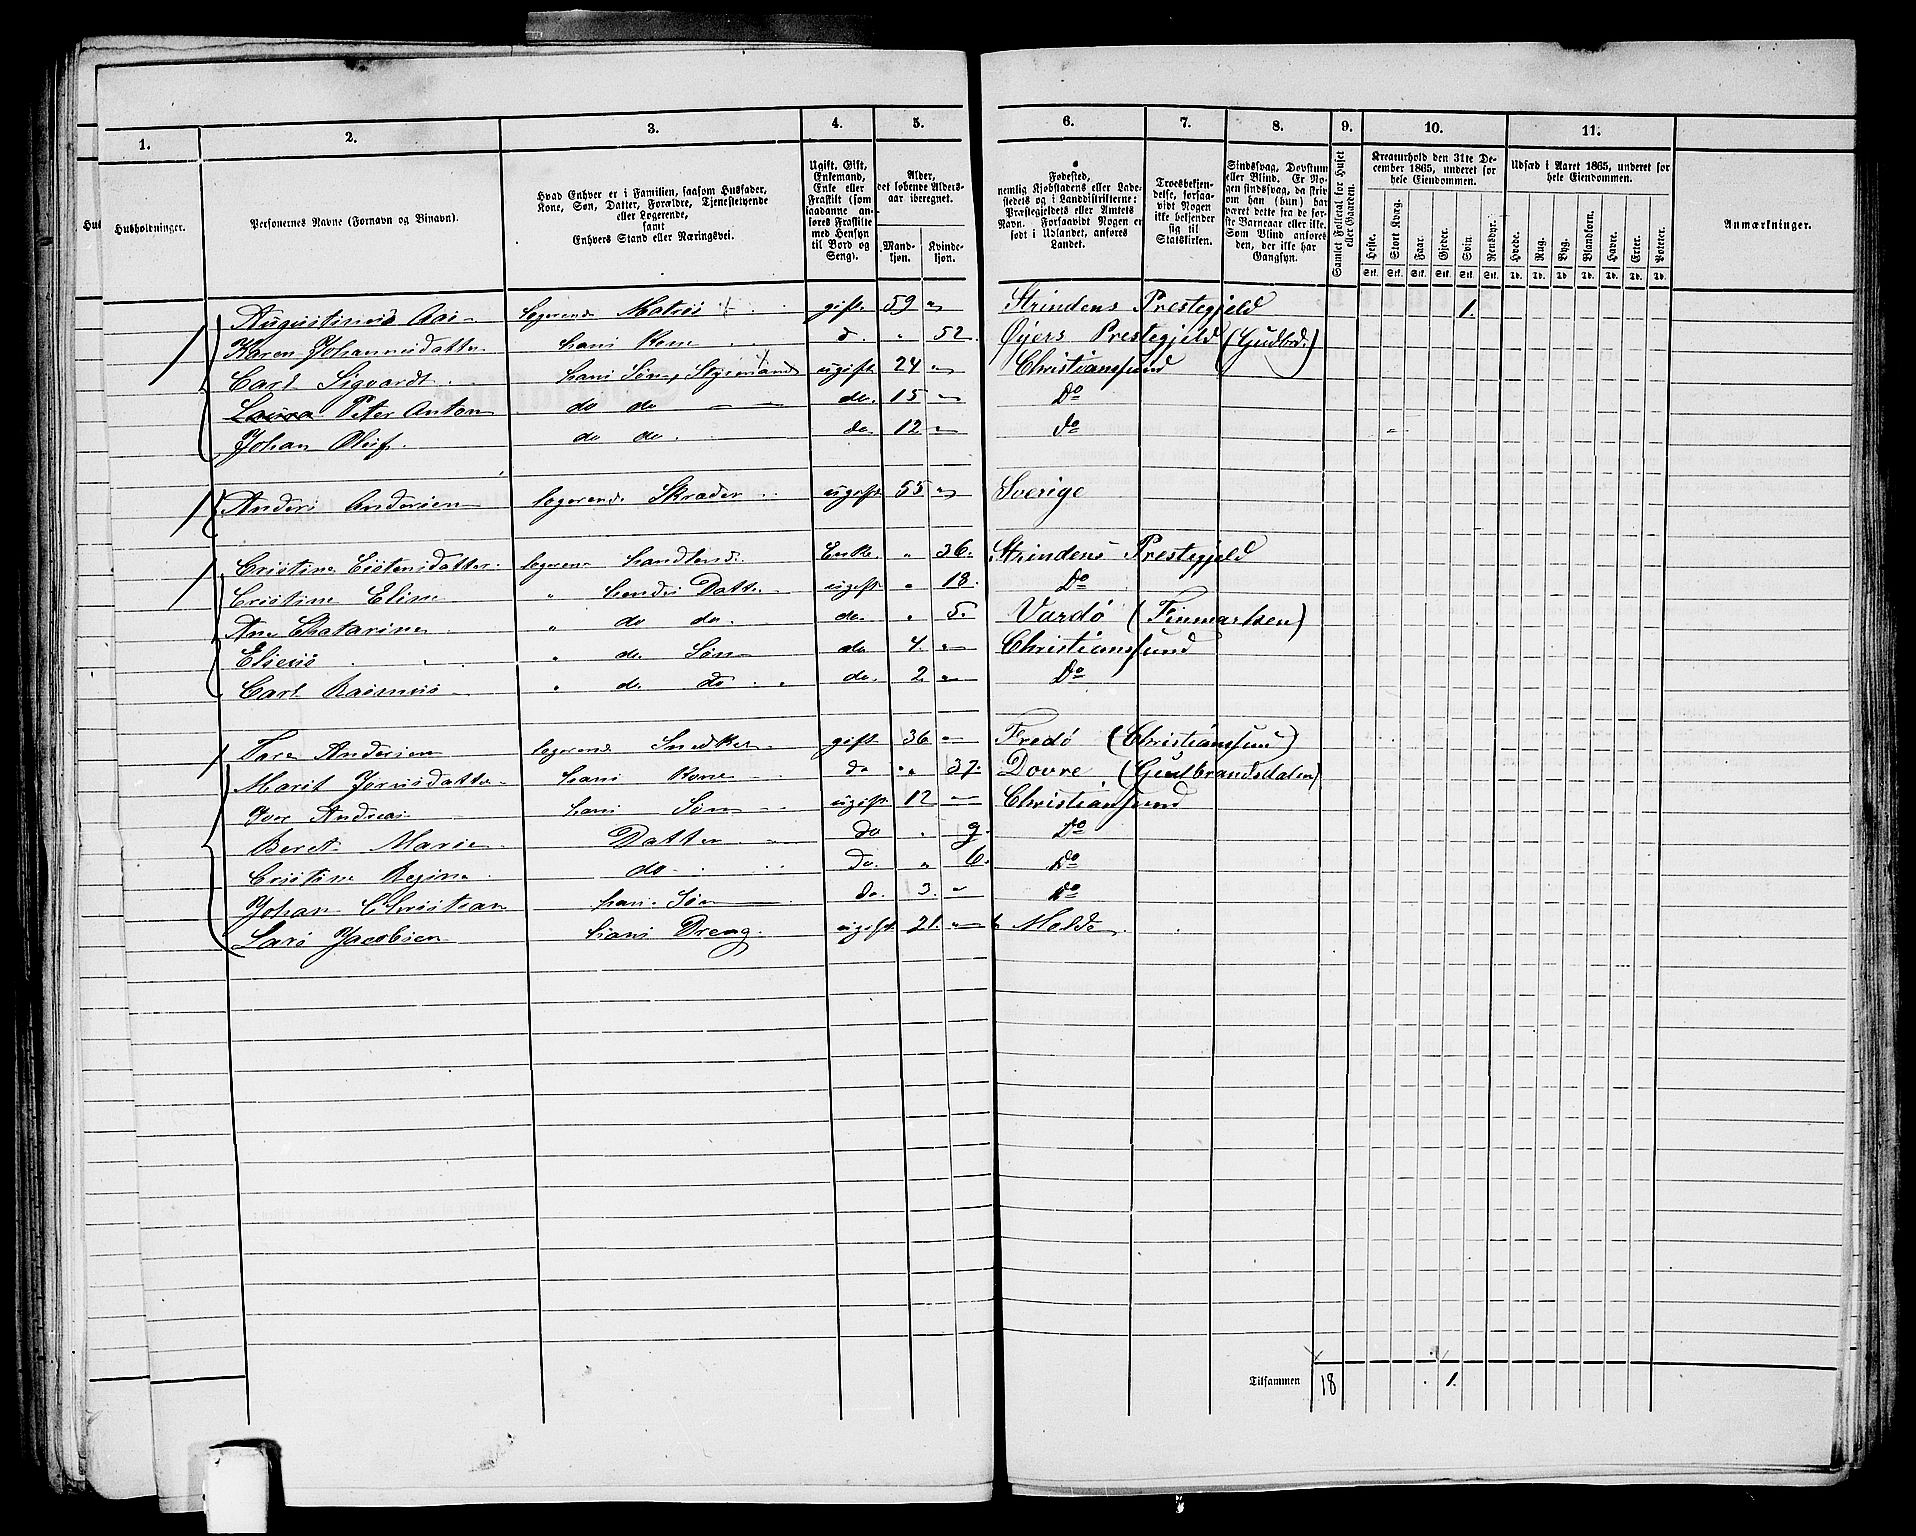 1. 2. 3. 4. 5. 6. 7. 8. 9. 10. 11.
Husholdninger.
Personernes Navne (Fornavn og Binavn).
Hvad Enhver er i Familien, saasom Husfader, Kone, Søn, Datter, Forældre, Tjenestetyende eller Logerende, samt Enhvers Stand eller Næringsvei.
Ugift, Gift, Enkemand, Enke eller Fraskilt (som saadanne anføres Fraskilte med Hensyn til Bord og Seng).
Alder, det løbende Aldersaar iberegnet.
Mandkjøn. Kvindekjøn.
Fødested, nemlig Kjøbstadens eller Ladestedets og i Landdistrikterne: Præstegjeldets eller Amtets Navn. Forsaavidt Nogen er født i Udlandet, anføres Landet.
Troesbekjendelse, forsaavidt Nogen ikke bekjender sig til Statskirken.
Sindssvag, Døvstum eller Blind. Er Nogen sindssvag, da skrives om han (hun) har været dette fra de første Barneaar eller ikke. Som Blind anføres den, der ikke har Gangsyn.
Samlet Folketal for Huset eller Gaarden.
Kreaturhold den 31te December 1865, underet for hele Eiendommen.
Heste. Stort Kvæg. Faar. Gjeder. Svin. Rensdyr.
Udsæd i Aaret 1865, underet for hele Eiendommen.
Hvede. Rug. Byg. Blandkorn. Havre. Erter. Poteter.
Stk. Stk. Stk. Stk. Stk. Stk. Td. Td. Td. Td. Td. Td. Td.
Anmærkninger.
Augustinus Aas logerende Matros gift 59 " Strindens Prestegjeld 1.
Karen Johannesdatter hans Kone d. " 52 Øyers Prestegjeld (Gudbrd.)
Carl Sigvardt hans Søn, Styrmand ugift 24 " Christianssund
Peter Anton do do do. 15 " Do
Johan Oluf do do do 12 " do
Anders Andersen logerende Skræder ugift 55 " Sverige
Cristine Eistensdatter logerende Handlende Enke " 36. Strindens Prestegjeld
Cristine Eline " hendes Datter ugift " 18. Do
Ane Chatarine " do do. do. " 5. Vardö (Finmarken)
Elieses " do. Søn do 4. " Christianssund
Carl Rasmus " d. do do. 2 " Do
Tore Andersen logerende Snedker gift 36 " Fredö (Christianssund)
Marit Jørnsdatter hans Kone do " 37. Dovre (Gudbrandsdalen)
Iver Andreas hans Søn ugift 12 Christianssund
Beret Marie Datter do " 9. Do
Cristine Regine do do. " 6. Do
Johan Christian hans Søn do. 3. " Do
Lars Jacobsen hans Dreng ugift. 21. " Molde
Tilsammen 18 1.